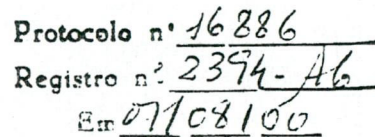 Protocolo nº 16886
Registro nº 2394-A6
Em 07/08/00